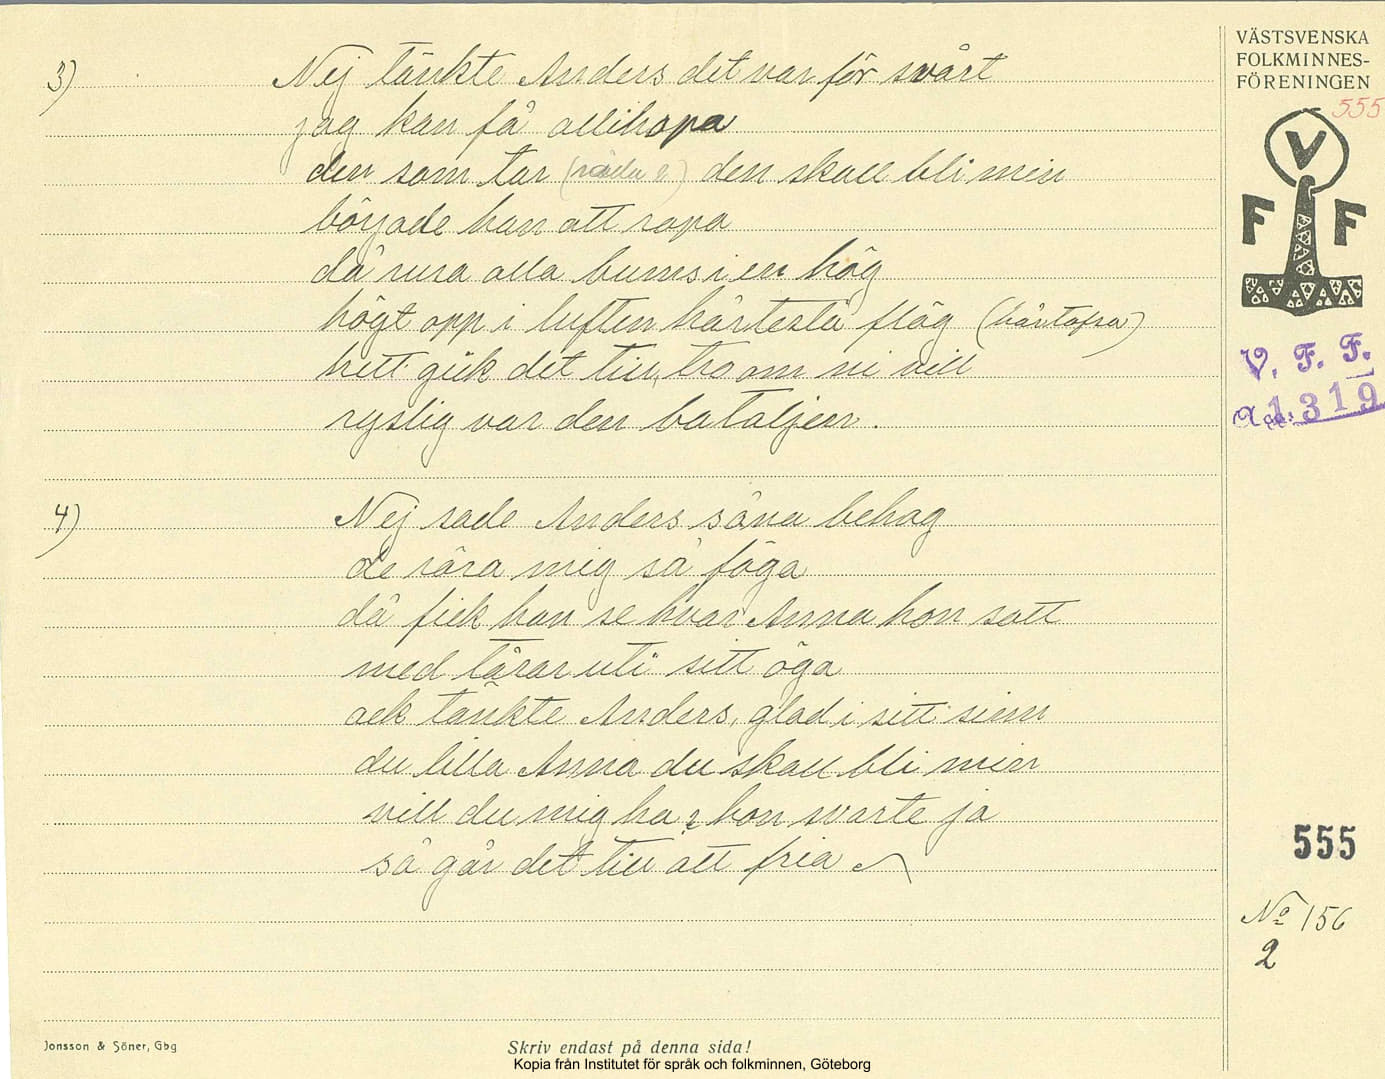 VÄSTSVENSKA
FOLKMINNES-
FÖRENINGEN
555
V
F F
V. F. F.
Acc. 1319
3) Nej tänkte Anders det var för svårt
jag kan få allihopa
den som tar den skall bli min
började han att ropa
då rusa alla bums i en hög
högt opp i luften hårtesla flög
hett gick det till, tro om ni vill
ryslig var den bataljen.
4) Nej sade Anders såna behag
de röra mig så föga
då fick han se hvar Anna hon satt
med tårar uti sitt öga
ack tänkte Anders, glad i sitt sinn
du lilla Anna du skall bli min
vill du mig ha? hon svarte ja
så går det till att fria
555
No 156
2
Jonsson & Söner, Gbg
Skriv endast på denna sida!
Kopia från Institutet för språk och folkminnen, Göteborg